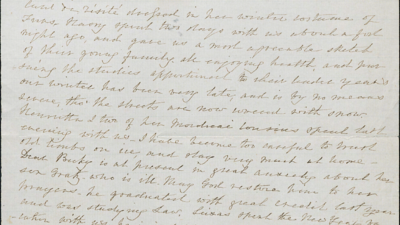 and visits dressed in her winter costume of
Furs. Henry spent two days with us about a fort
night ago, and gave us a most agreeable sketch
of their young family all enjoying health, and pur
suing the studies appropriate to their tender years
our winter has been very late, and is by no means
severe, tho' the streets are now uneven with snow
Henrietta & two of her Montreal cousins spent last
evening with us. I have become too careful to trust
old limbs on ice, and stay very much at home
Dear Becky is at present in great anxiety about her
son Grat, who is ill. May God restore him to her
prayers. he graduated with great credit last year
and was studying law. spent the New Year
with us